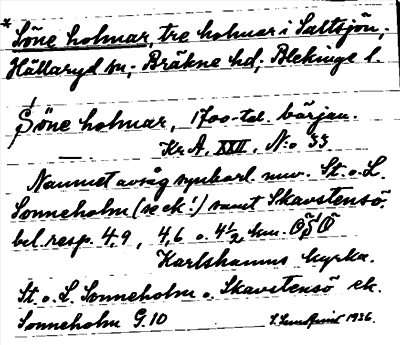 * Söne holmar, tre holmar i Saltsjön,
Hällaryd sn; Bräkne hd; Blekinge l.
Söne holmar, 1700-tal. början.
Kr A. XXII, N:o 33
Namnet avsåg synbarl. nuv. St. o. L.
Sonneholm (se ek!) samt Skavstensö,
bel. resp. 4,9, 4,6 o. 4 1/2 km. OSO
Karlshamns kyrka.
St. o. L. Sonneholm o. Skavstensö ek.
Sonneholm G. 10
1936.